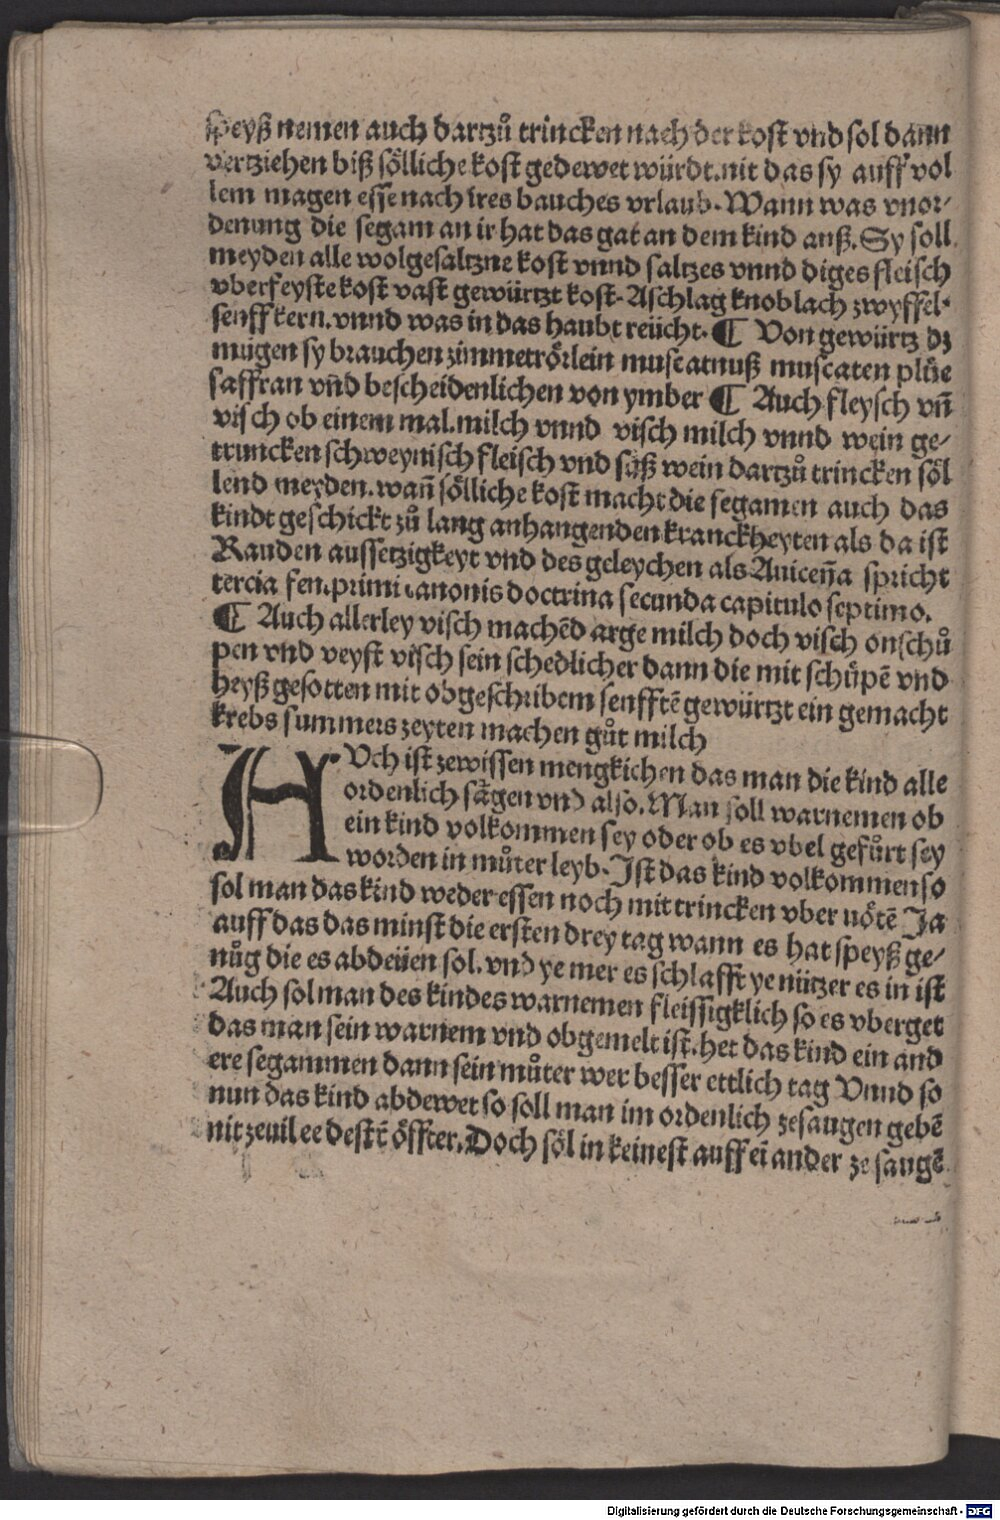 speyß nemen auch dartzů trincken nach der kost vnd sol dann
vertziehen biß sölliche kost gedewet würdt. nit das sy auff vol
lem magen esse nach ires bauches vrlaub. Wann was vnor⸗
denung die segam an ir hat das gat an dem kind auß. Sy soll
meyden alle wolgesaltzne kost vnnd saltzes vnnd diges fleisch
vberfeyste kost vast gewürtzt kost. Aschlag knoblach zwyffel.
senff kern. vnnd was in das haubt reücht. ¶ Von gewürtz dz
mügen sy brauchen zimmetrörlein muscatnuß muscaten plüe
saffran vñd bescheidenlichen von ymber ¶ Auch fleysch vñ
visch ob einem mal. milch vnnd visch milch vnnd wein ge⸗
truncken schweynisch fleisch vnd süß wein dartzů trincken söl
lend meyden. wañ sölliche kost macht die segamen auch das
kindt geschickt zů lang anhangenden kranckheyten als da ist
Rauden aussetzigkeyt vnd des geleychen als Auiceña spricht
tercia fen. primi canonis doctrina secunda capitulo septimo.
¶ Auch allerley visch machēd arge milch doch visch onschů
pen vnd veyst visch sein schedlicher dann die mit schůpē vnd
heyß gesotten mit obgeschribem senfftē gewürtzt ein gemacht
krebs summers zeyten machen gůt milch
AVch ist zewissen mengkichen das man die kind alle
ordenlich sågen vnd also. Man soll warnemen ob
ein kind volkommen sey oder ob es vbel gefůrt sey
worden in můter leyb. Ist das kind volkommen so
sol man das kind weder essen noch mit trincken vber nötē Ja
auff das das minst die ersten drey tag wann es hat speyß ge⸗
nůg die es abdeüen sol. vnd ye mer es schlafft ye nützer es in ist
Auch sol man des kindes warnemen fleissigklich so es vberget
das man sein warnem vnd obgemelt ist. het das kind ein and
ere segammen dann sein můter wer besser ettlich tag Vnnd so
nun das kind abdewet so soll man im ordenlich zesaugen gebē
nit zeuil ee destē öffter. Doch söl in keinest auff eī ander ze saugē
Digitalisierung gefördert durch die Deutsche Forschungsgemeinschaft - DFG